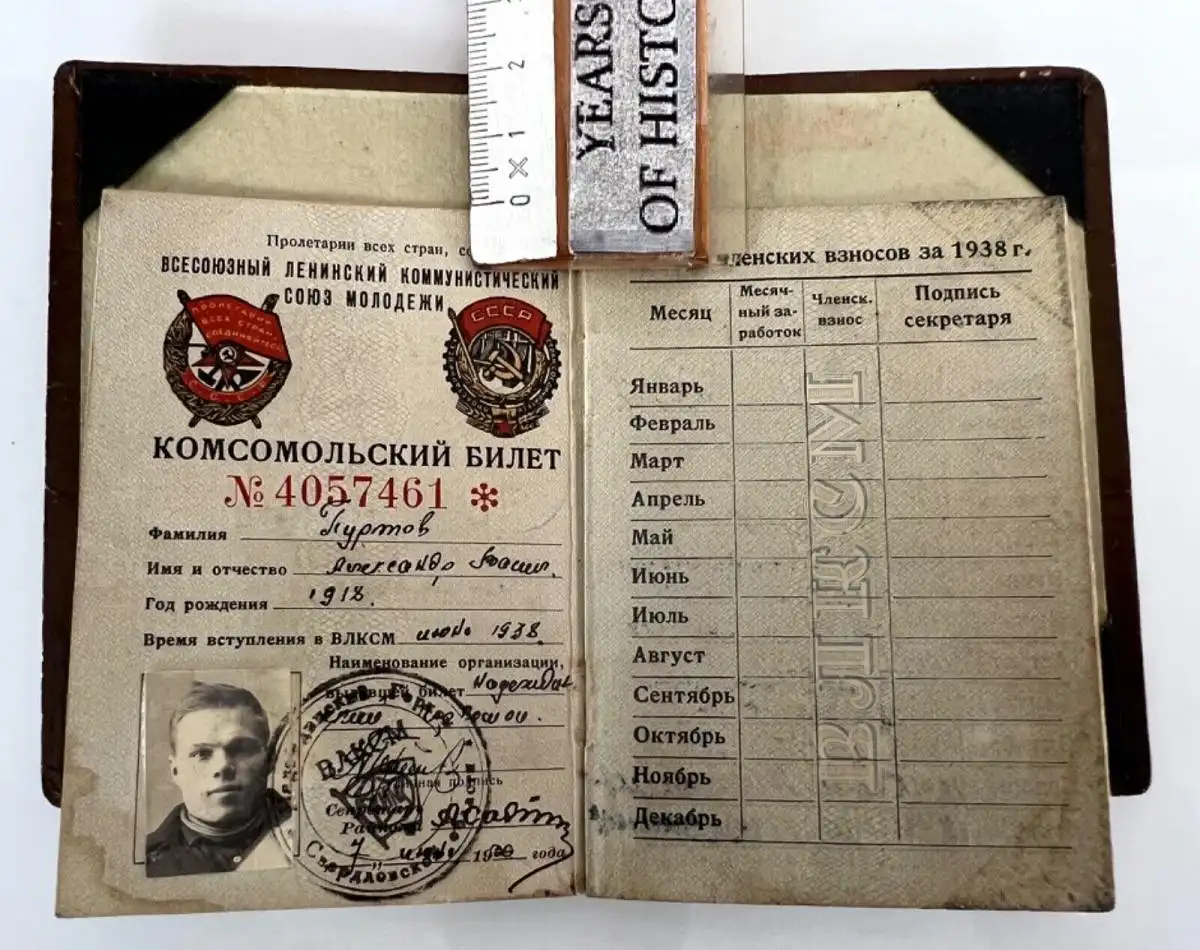 0 × 1 2
YEARS
OF HISTO
Пролетарии всех стран, со
ВСЕСОЮЗНЫЙ ЛЕНИНСКИЙ КОММУНИСТИЧЕСКИЙ
СОЮЗ МОЛОДЕЖИ
ПРОЛЕТАРИИ
ВСЕХ СТРАН
СОЕДИНЯЙТЕСЬ
С.С.С.Р.
СССР
КОМСОМОЛЬСКИЙ БИЛЕТ
№ 4057461
Фамилия Пуртов
Имя и отчество Александр Васил.
Год рождения 1918.
Время вступления в ВЛКСМ июнь 1938
Наименование организации,
выдавшей билет Надеждин
ВЛКСМ
подпись
Секретарь
Райкома
7 июнь 19 года
Свердловской
ленских взносов за 1938 г.
Месяц Месяч-ный за-работок Членск. взнос Подпись секретаря
Январь
Февраль
Март
Апрель
Май
Июнь
Июль
Август
Сентябрь
Октябрь
Ноябрь
Декабрь
ВЛКСМ